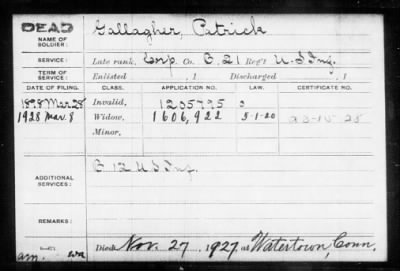 DEAD
NAME OF SOLDIER: Gallagher, Patrick
SERVICE: Late rank, Corp. Co. C. 21 Reg't U.S. Inf.
TERM OF SERVICE: Enlisted , 1 Discharged , 1
DATE OF FILING. CLASS. APPLICATION NO. LAW. CERTIFICATE NO.
1898 Mar. 28 Invalid, 1205795
1928 Mar. 8 Widow, 1606,922 5-1-20
Minor,
ADDITIONAL SERVICES: C 12 U.S. Inf.
REMARKS:
Died Nov. 27, 1927, at Watertown, Conn.